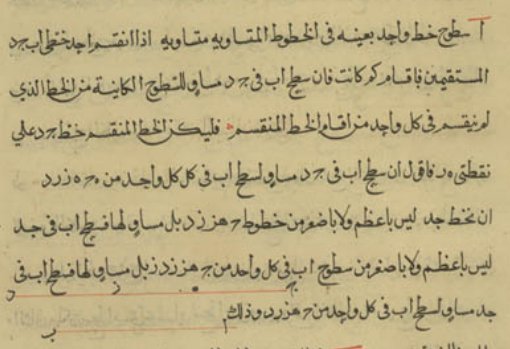 آ سطوح خط واحد بعينه فى الخطوط المتساويه متساويه اذا انقسم احد خطى اب جد
المستقيمين باقسام كم كانت فان سطح اب فى جد مساو للسطوح الكاينة من الخط الذي
لم ينقسم فى كل واحد من اقسام الخط المنقسم فليكن الخط المنقسم خط جد علي
نقطتى ه ر فاقول ان سطح اب فى جد مساو لسطح اب فى كل كل واحد من جه ه زرد
ان نخط جد ليس باعظم ولا باصغر من خطوط جه هز زد بل مساو لها فسطح اب فى جد
ليس باعظم ولا باصغر من سطوح اب فى كل واحد من جه هز زد زبل مساو لها فسطح اب فى
جد مساو لسطح اب فى كل واحد من جه هز رد وذلك